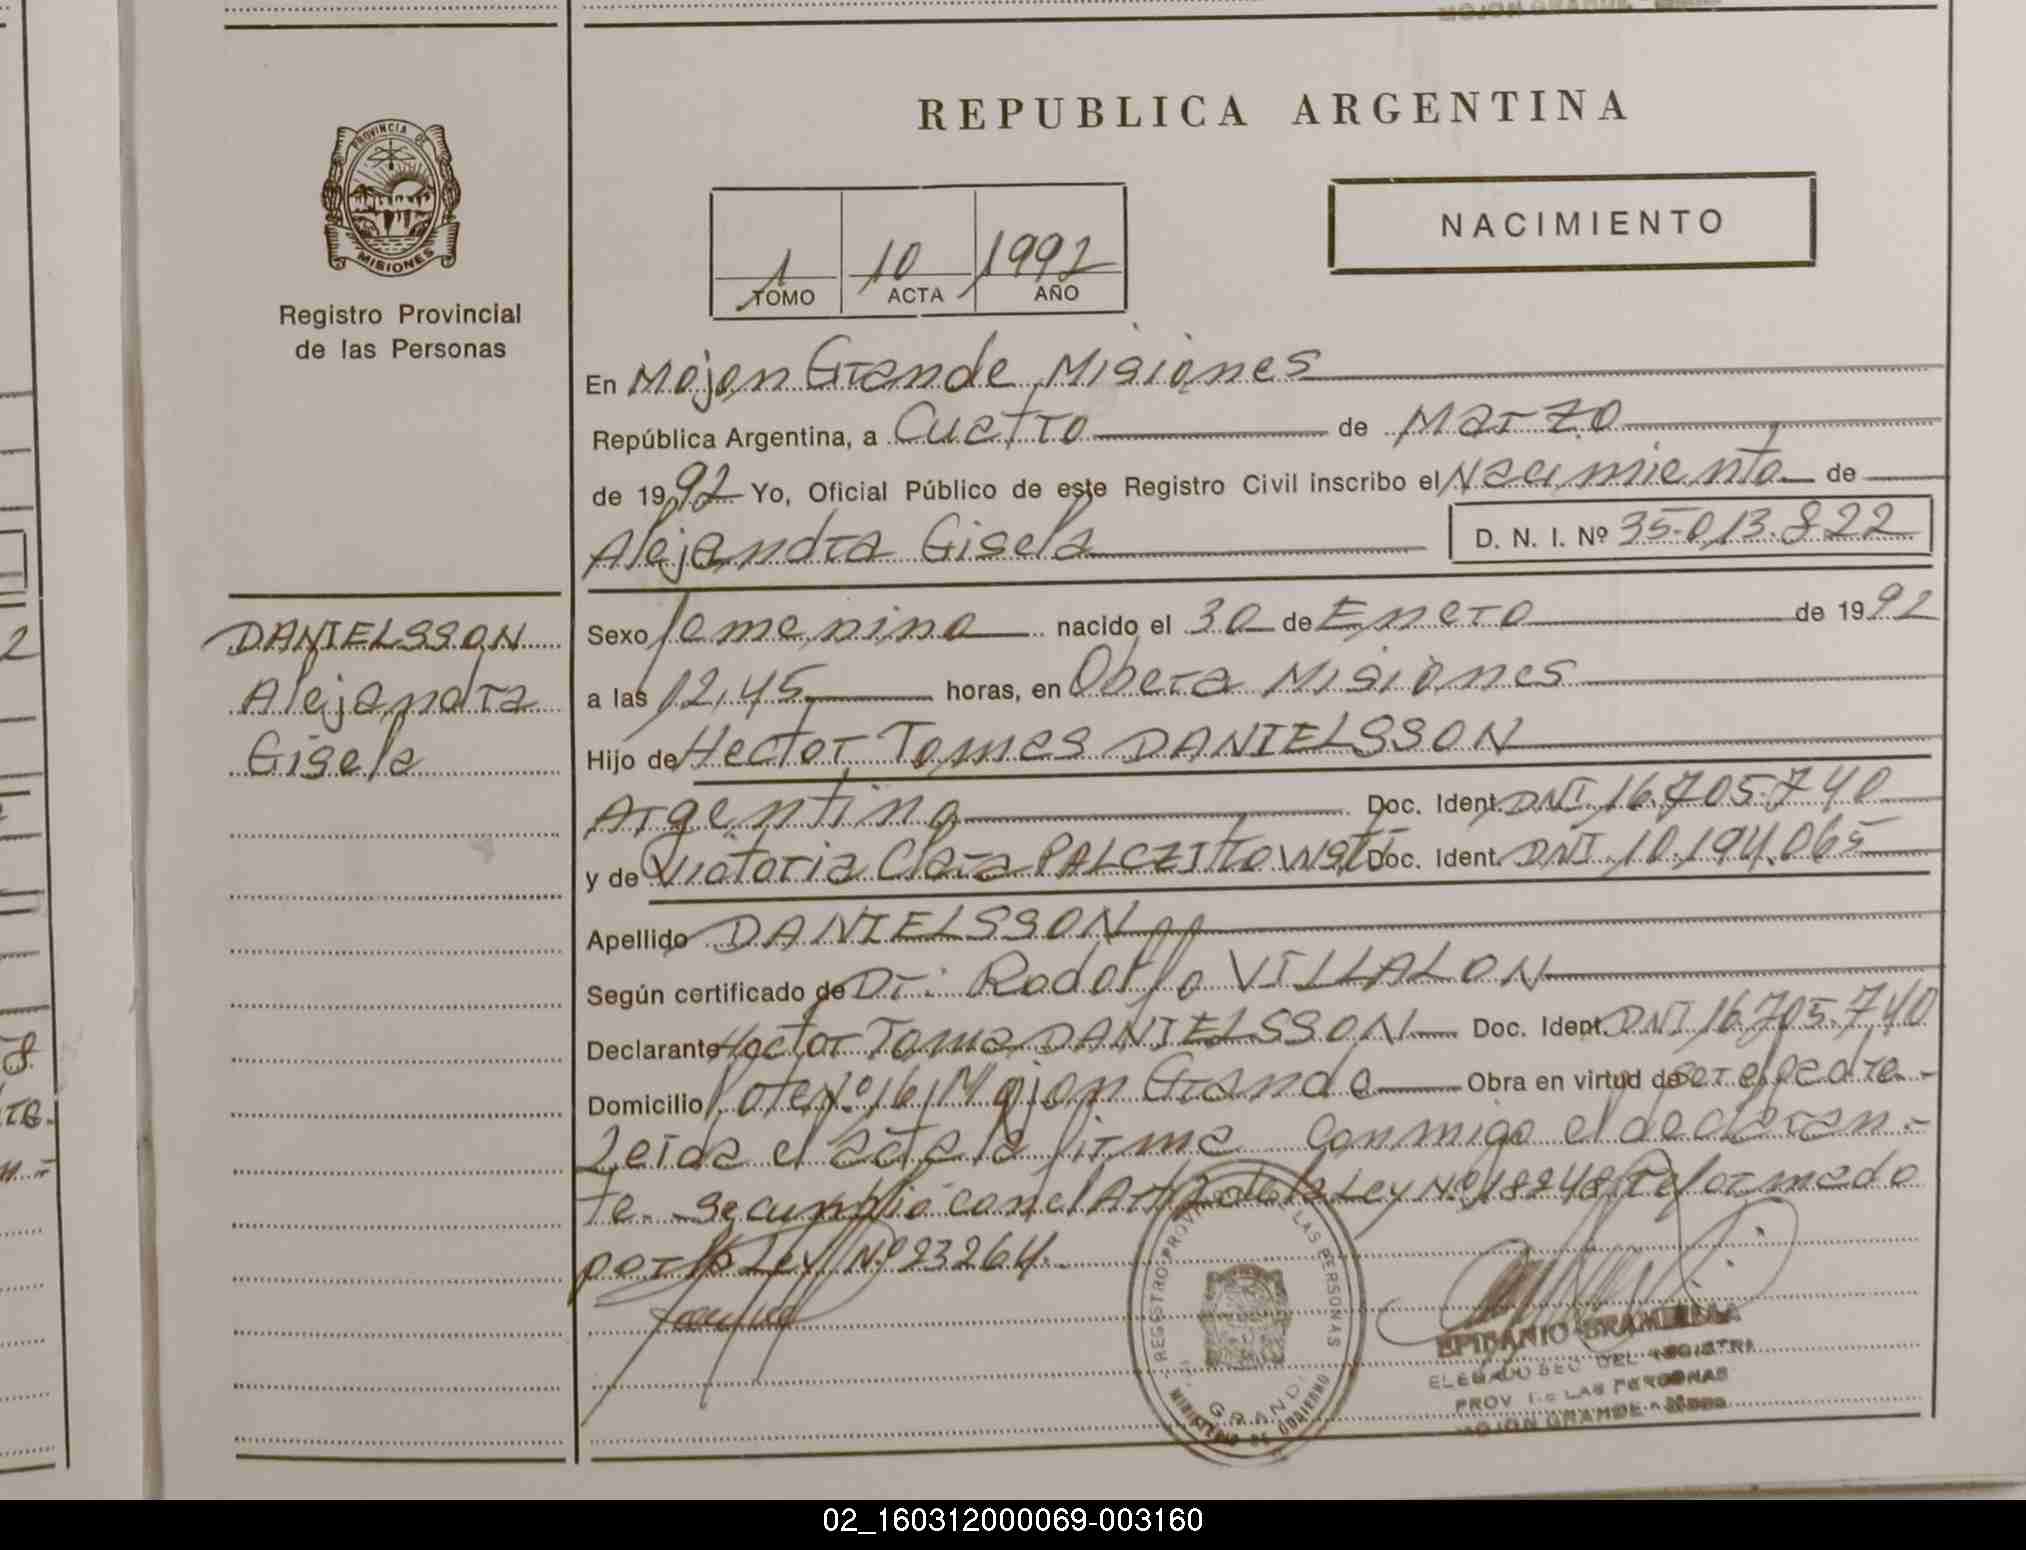 REPUBLICA ARGENTINA
PROVINCIA DE
MISIONES
Registro Provincial
de las Personas
1 10 1992
TOMO ACTA AÑO
NACIMIENTO
En Mojon Grande, Misiones
República Argentina, a Cuatro de Marzo
de 1992 Yo, Oficial Público de este Registro Civil inscribo el Nacimiento de
Alejandra Gisela D. N. I. Nº 35.013.822
DANIELSSON
Alejandra
Gisela
Sexo femenino nacido el 30 de Enero de 1992
a las 12,45 horas, en Obera Misiones
Hijo de Hector Tomas DANIELSSON
Argentino Doc. Ident. DNI. 16.705.740
y de Victoria Clara Doc. Ident. DNI. 10.194.065
Apellido DANIELSSON
Según certificado de Dr: Rodolfo VILLALON
Declarante Hector Tomas DANIELSSON Doc. Ident. DNI 16.705.740
Domicilio Lote Nº 16, Mojon Grande Obra en virtud de ser el padre.-
Leida el acta la firma conmigo el declaran-
te. Se cumplió con el Art. 12 de la Ley Nº 18248 reformado
por la Ley Nº 23264.
REGISTRO LAS PERSONAS
GRAND
MINISTERIO DE GOBIERNO
EPIFANIO
DEL REGISTR
PROV LAS PERSONAS
MOJON GRANDE
02_160312000069-003160